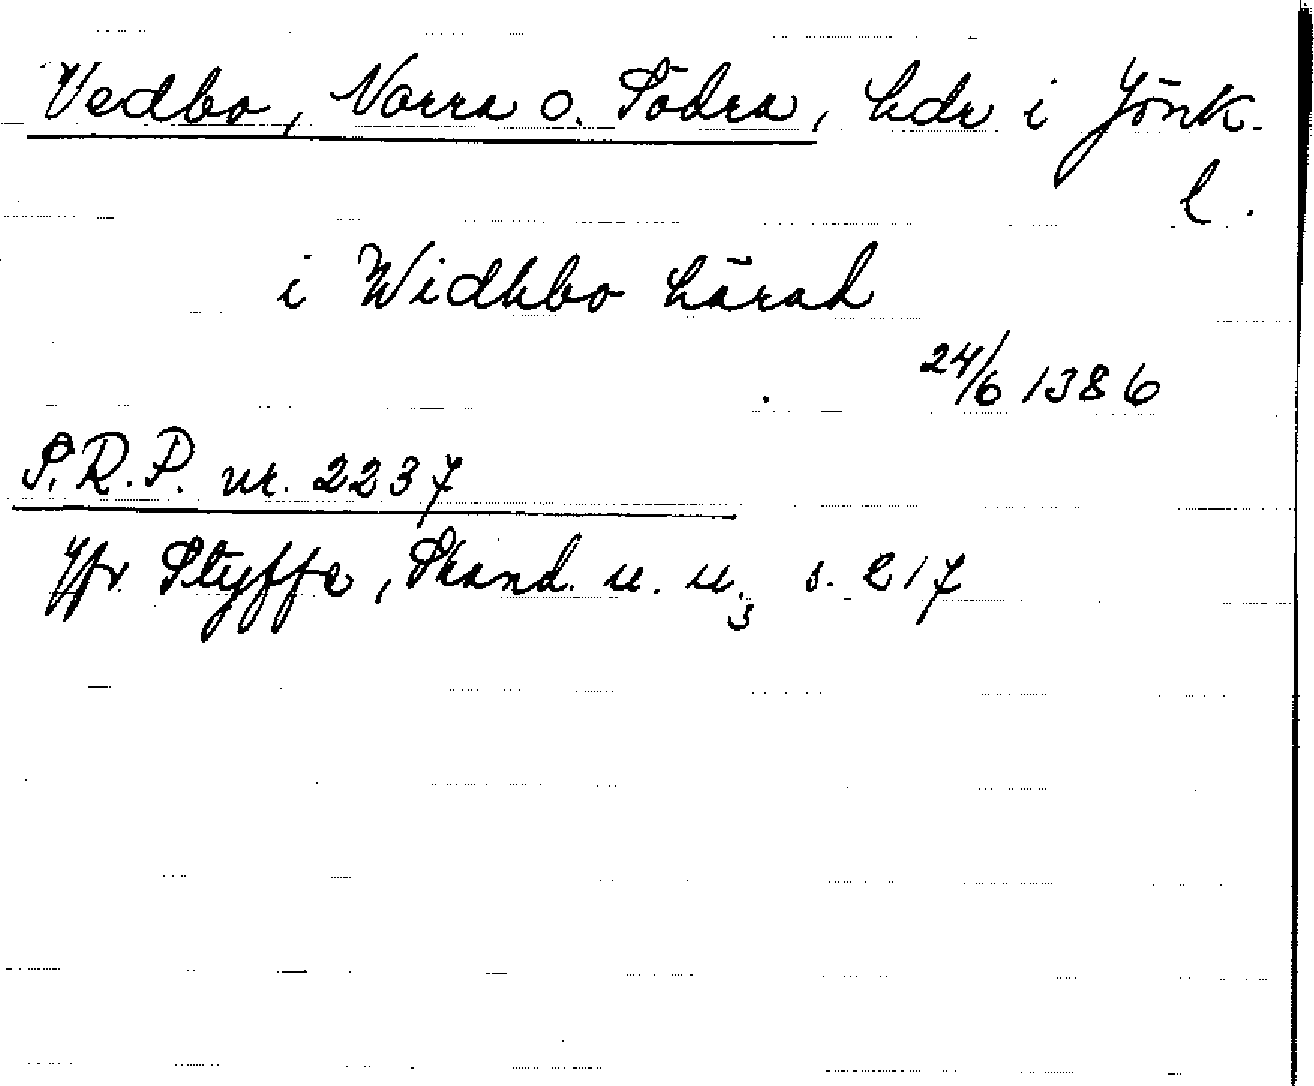 Vedbo, Norra o. Södra, hdr i Jönk.
l.
i Widhbo härad
24/6 1386
S.R.P. nr. 2237
Jfr Styffe, Skand. u. u.3 s. 217